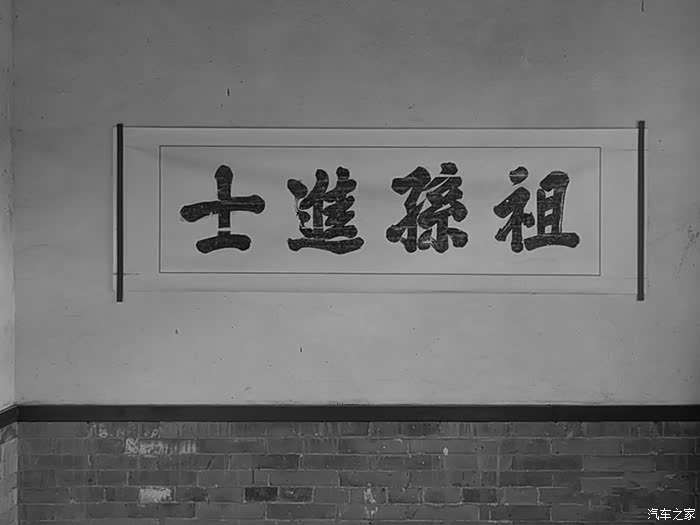 祖孫進士
汽车之家